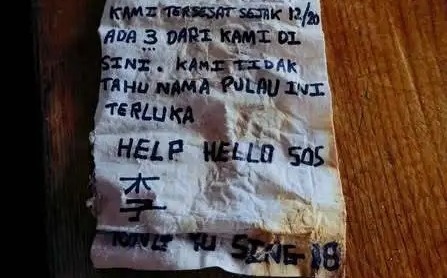 KAMI TERSESAT SEJAK 12/20
ADA 3 DARI KAMI DI
SINI. KAMI TIDAK
TAHU NAMA PULAU INI
TERLUKA
HELP HELLO SOS
李
YU SING 18